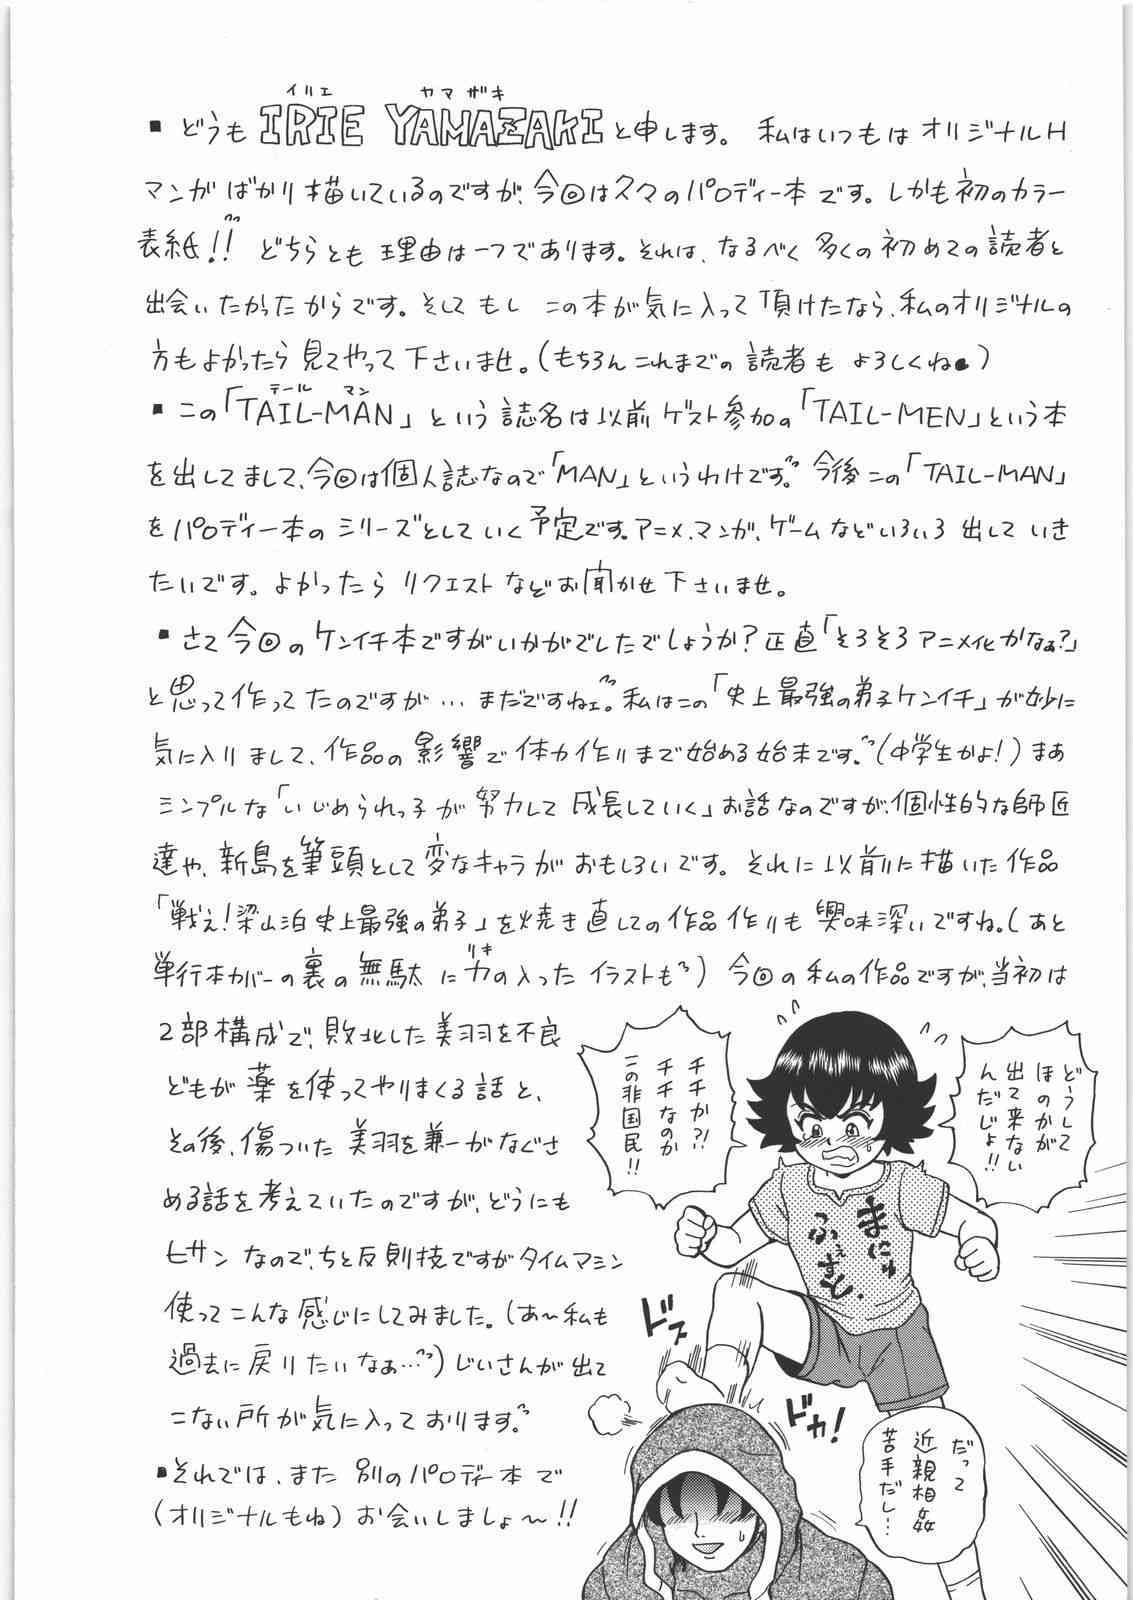 イリエ ヤマザキ
▪どうも IRIE YAMAZAKIと申します。私はいつもはオリジナルH
マンガばかり描いているのですが、今回は久々のパロディー本です。しかも初のカラー
表紙!! どちらとも理由は一つであります。それは、なるべく多くの初めての読者と
出会いたかったからです。そしてもし この本が気に入って頂けたなら、私のオリジナルの
方もよかったら見てやって下さいませ。(もちろんこれまでの読者も よろしくね)
テール マン
▪この「TAIL-MAN」という誌名は以前ゲスト参加の「TAIL-MEN」という本
を出してまして、今回は個人誌なので「MAN」というわけです。今後この「TAIL-MAN」
をパロディー本のシリーズとしていく予定です。アニメ、マンガ、ゲームなどいろいろ出していき
たいです。よかったら リクエストなどお聞かせ下さいませ。
▪さて今回のケンイチ本ですがいかがでしたでしょうか?正直「そろそろアニメ化かなぁ?」
と思って作ってたのですが…まだですねェ。私はこの「史上最強の弟子ケンイチ」が妙に
気に入りまして、作品の影響で体力作りまで始める始末です。(中学生かよ!)まあ
シンプルな「いじめられっ子が努力して成長していく」お話なのですが、個性的な師匠
達や、新島を筆頭として変なキャラがおもしろいです。それに以前に描いた作品
「戦え!梁山泊史上最強の弟子」を焼き直しての作品作りも興味深いですね。(あと
単行本カバーの裏の無駄に力の入ったイラストも)今回の私の作品ですが、当初は
リキ
2部構成で、敗北した美羽を不良
どもが薬を使ってやりまくる話と、
その後、傷ついた美羽を兼一がなぐさ
める話を考えていたのですが、どうにも
ヒサンなので、ちと反則技ですがタイムマシン
使ってこんな感じにしてみました。(あ〜私も
過去に戻りたいなぁ…)じいさんが出て
こない所が気に入っております。
▪それでは、また別のパロディー本で
(オリジナルもね)お会いしましょ〜!!
どーして
ほのかが
出て来ない
んだじょ!!
チチか?!
チチなのか
この非国民!!
まにゅ
ふぇすと.
ドス
ドカ!
だって
近親相姦
苦手だし…